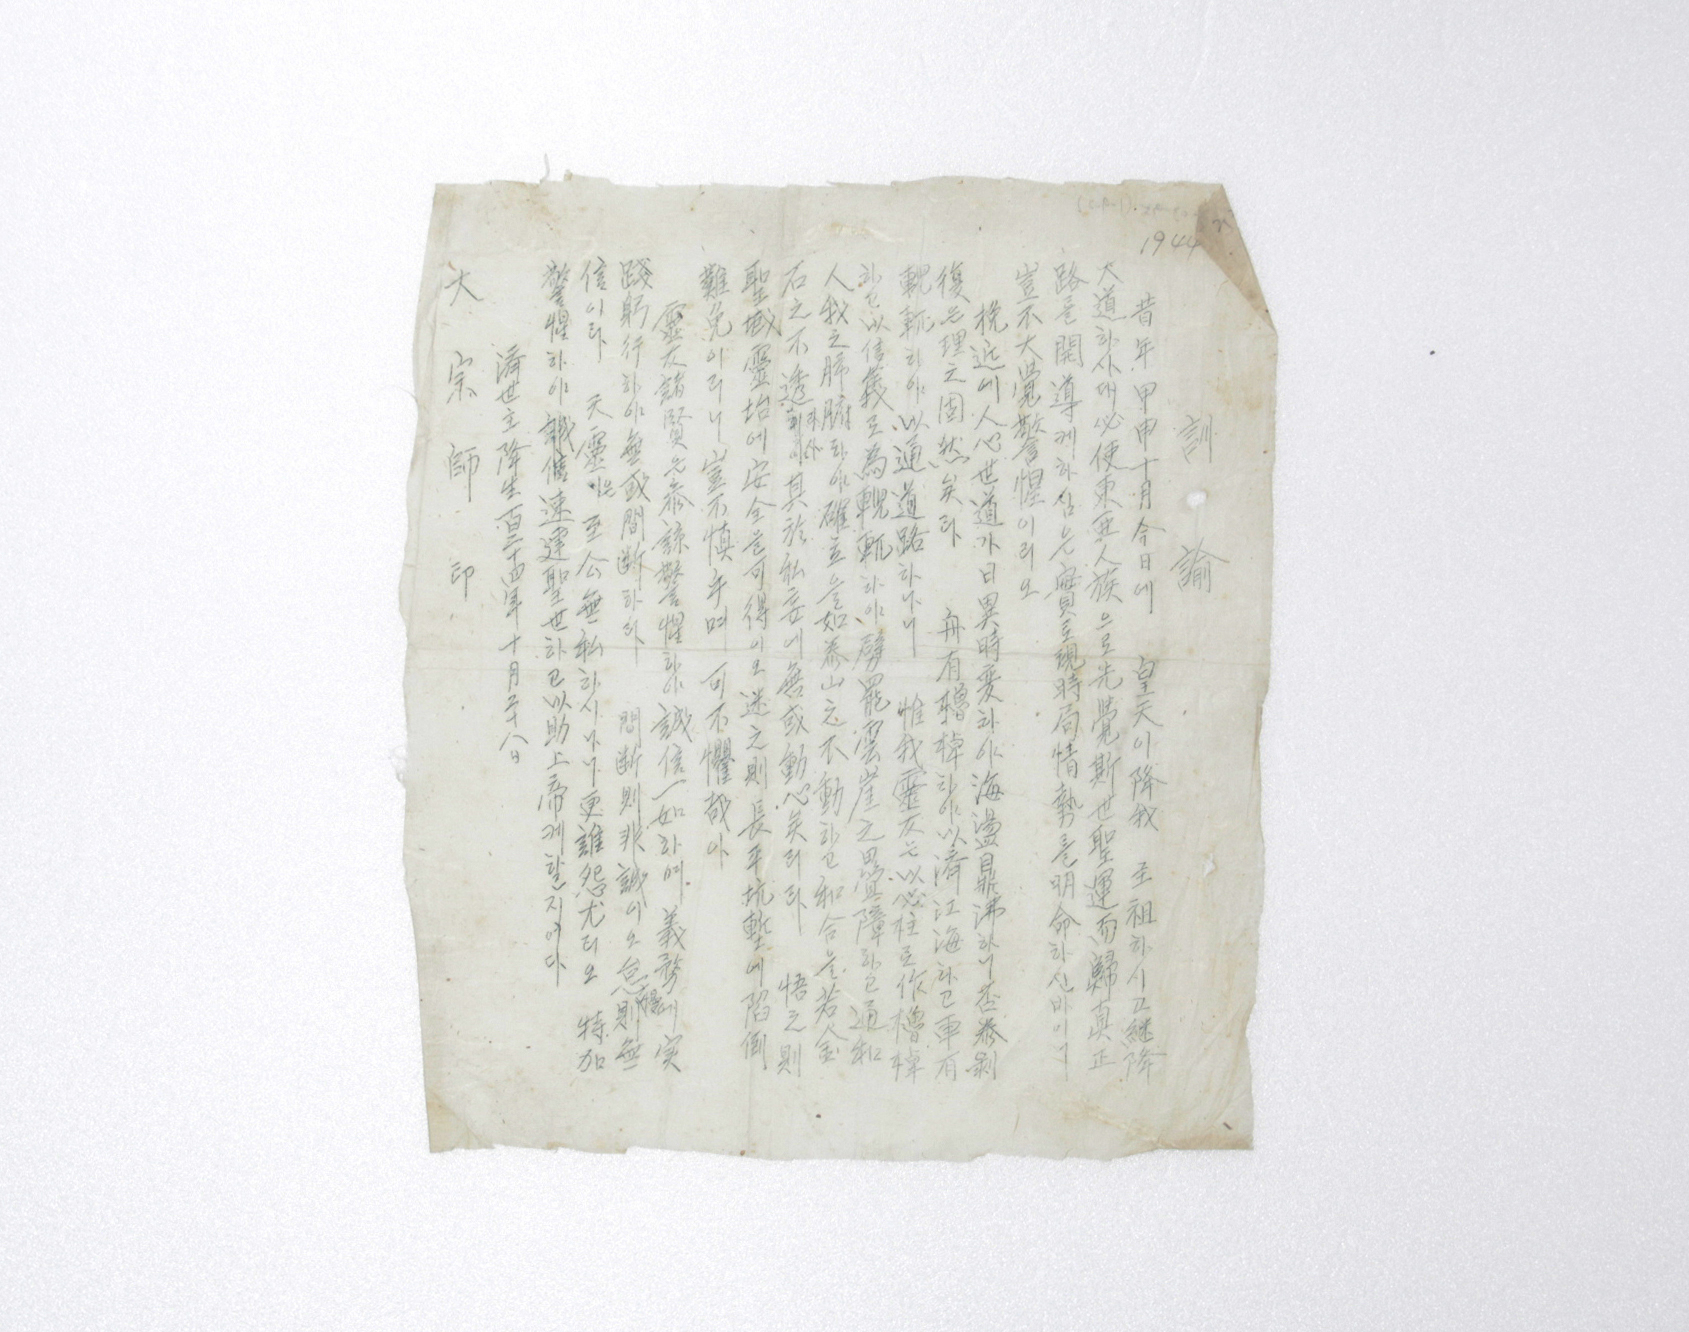 1944
訓諭
昔年甲申十月今日에 皇天이降我 主祖하시고繼降
大道하사대必使東亞人族으로先覺斯世聖運而歸真正
路를開導케하심은實로現時局情勢를明命하신바이니
豈不大覺警惺이리오
挽近에人心世道가日異時変하야海盪鼎沸하니否泰剝
復은理之固然矣라 舟有櫓棹하야以濟江海하고車有
輗軏하야以通道路하나니 惟我靈友는以心柱로作櫓棹
하고以信義로為輗軏하야劈罷雲崖之障하고通和
人我之肺腑하야確立을如泰山之不動하고和合을若金
石之不透하야其於私妄에無或動心矣리라 悟之則
聖域靈坮에安全을可得이오迷之則長平坑塹에陷倒
難免이리니豈不慎乎며可不懼哉아
靈友諸賢은參諒警惺하야誠信一如하며義務에実
踐躬行하야無或間断하라 間断則非誠이오怠則無
信이라 天靈은至公無私하시나니更誰怨尤리오 特加
警惺하야誠信速運聖世하고以助上帝케할지어다
濟世主降生百二十四年十月二十八日
大宗師印